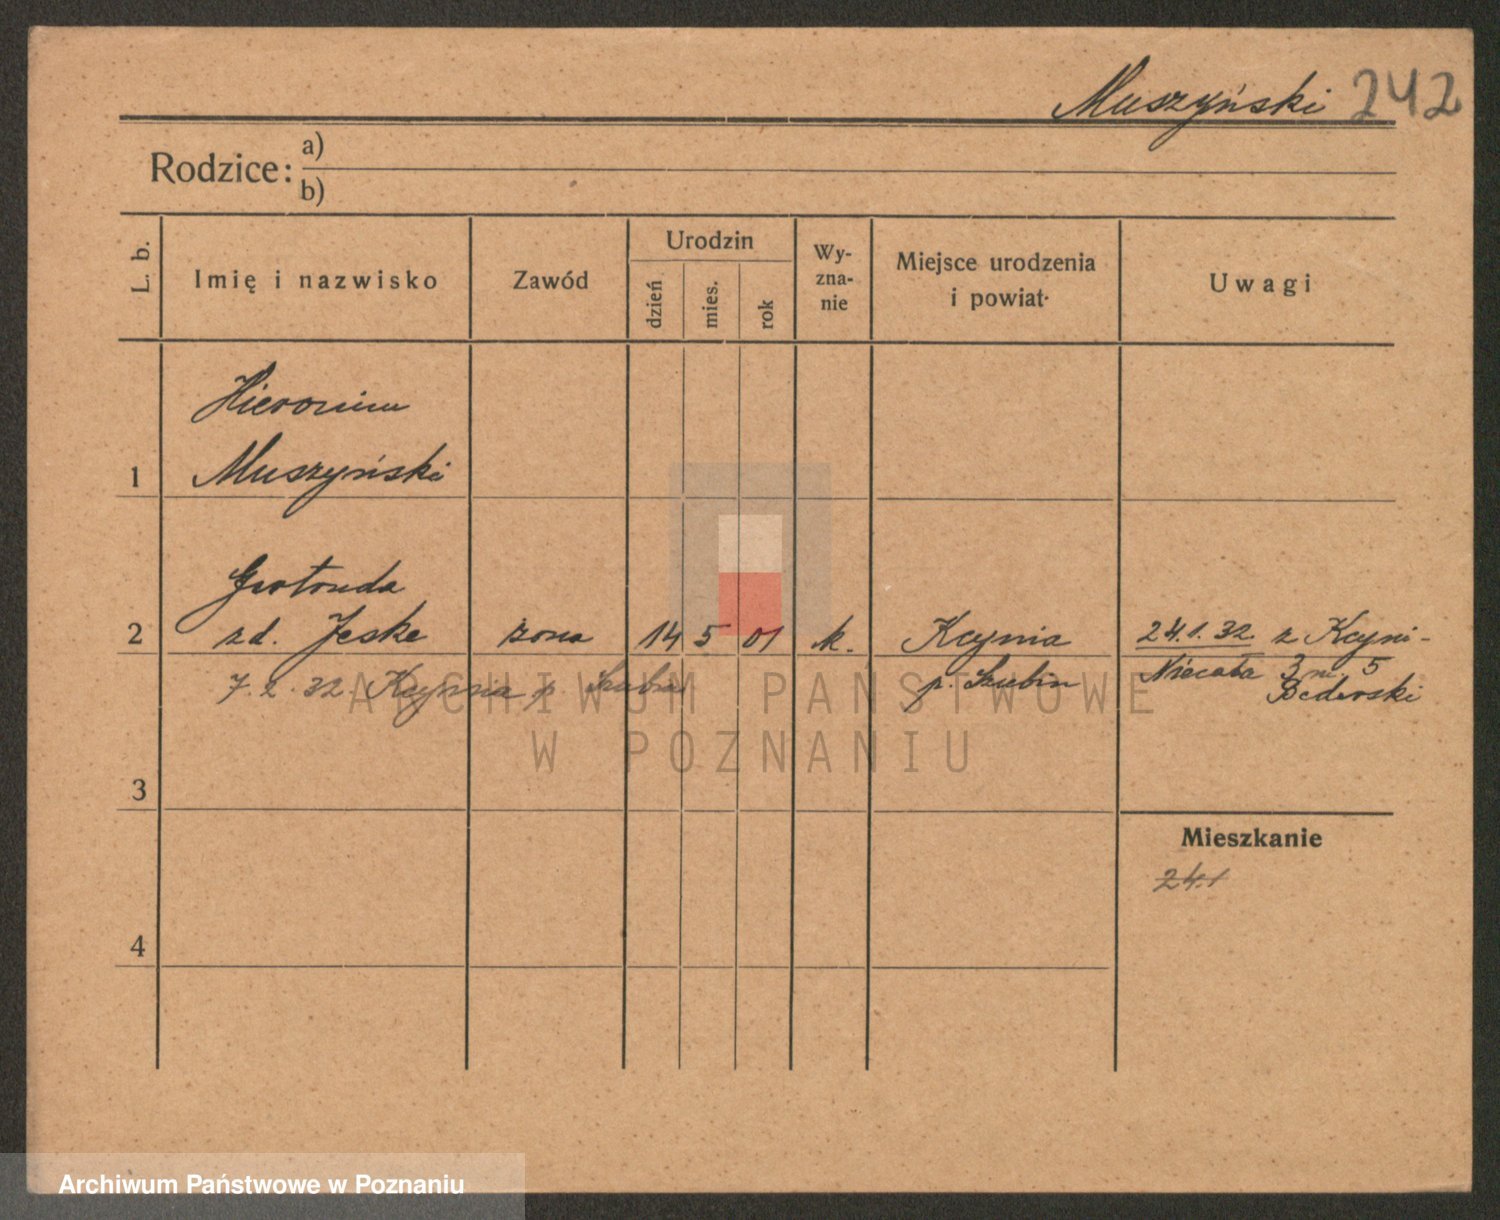 Muszyński 242
Rodzice: a)
b)
L. b.
Imię i nazwisko
Zawód
Urodzin
dzień
mies.
rok
Wy-
zna-
nie
Miejsce urodzenia
i powiat
Uwagi
Hieronim
1 Muszyński
Gertruda
2 zd. Jeske żona 14 5 01 k. Kcynia 24.1.32 z Kcyni-
p. Szubin
Niecała 3 m. 5
Bederski
7.2.32. Kcynia p. Szubin
3
Mieszkanie
24.1
4
ARCHIWUM PAŃSTWOWE
W POZNANIU
Archiwum Państwowe w Poznaniu